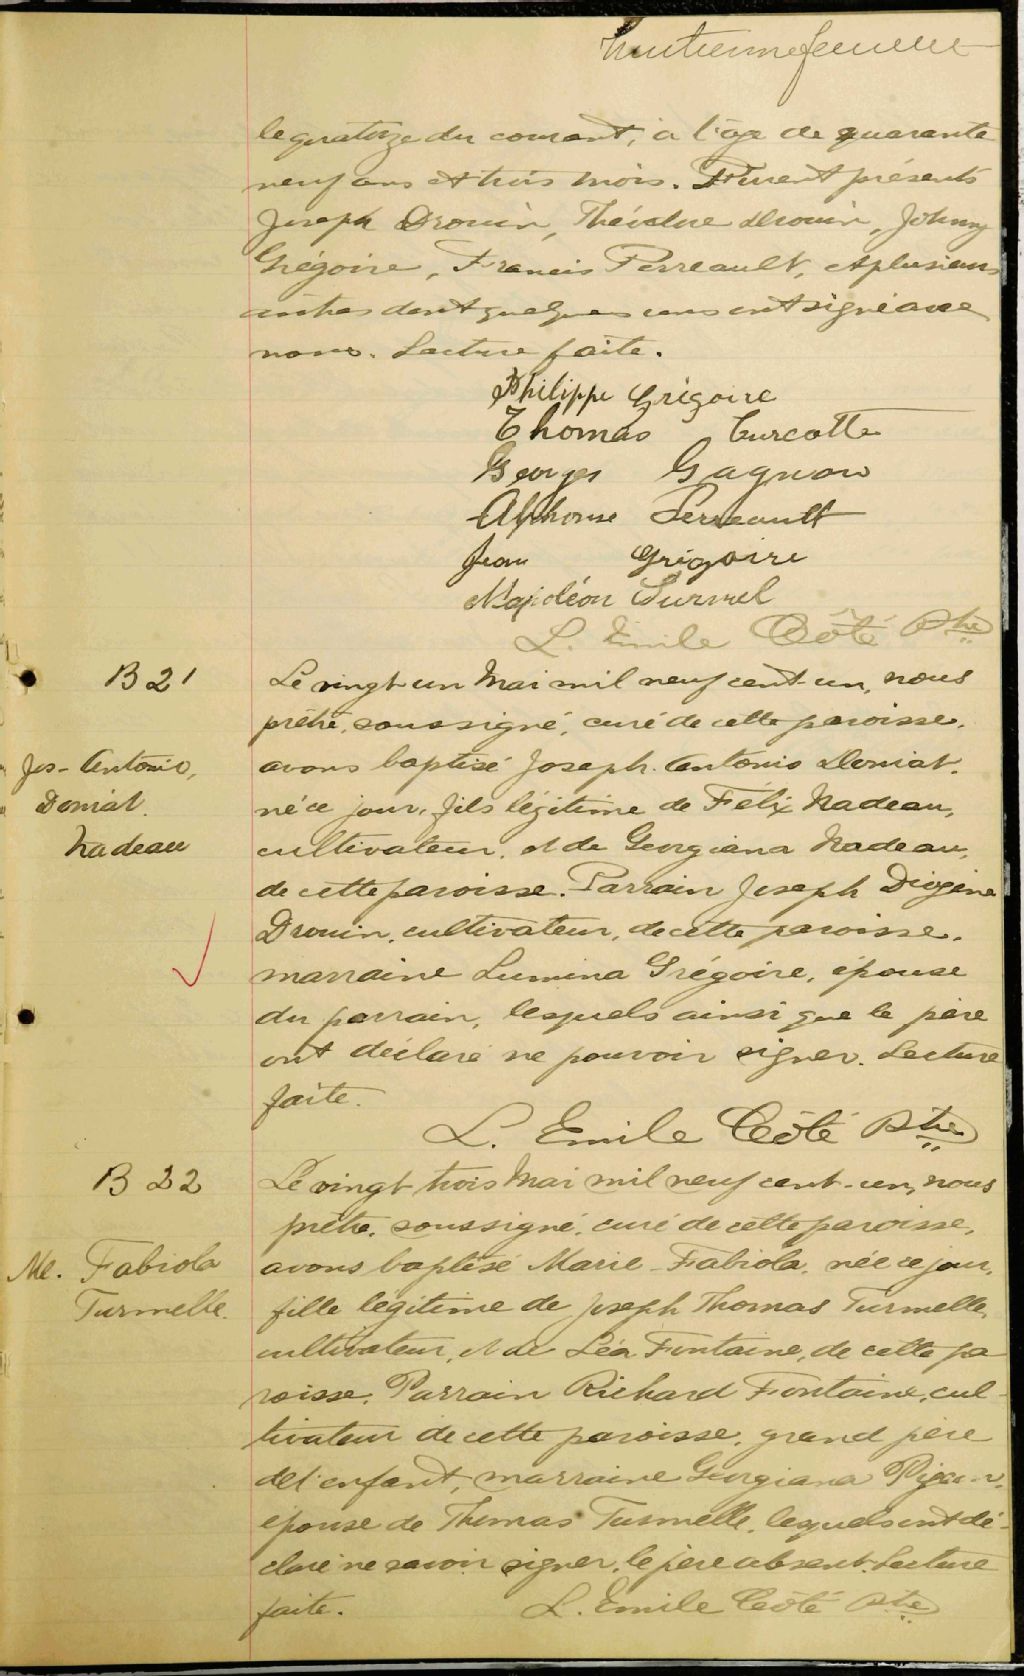 huitième feuillet
le quatorze du courant, à l'âge de quarante
neuf ans et trois mois. Furent présents
Joseph Drouin, Théodore Drouin, Johnny
Grégoire, Francis Perreault, et plusieurs
autres dont quelques uns ont signé avec
nous. Lecture faite.
Philippe Grégoire
Thomas Turcotte
Georges Gagnon
Alphonse Perreault
Jean Grégoire
Napoléon Turmel
L. Emile Côté Ptre
B 21
Jos-Antonio,
Doniat.
Nadeau
Le vingt-un Mai mil neuf cent-un, nous
prêtre, soussigné, curé de cette paroisse,
avons baptisé Joseph-Antonio Doniat.
né ce jour, fils légitime de Félix Nadeau,
cultivateur, et de Georgiana Nadeau,
de cette paroisse. Parrain Joseph Diogène
Drouin, cultivateur, de cette paroisse,
marraine Lumina Grégoire, épouse
du parrain, lesquels ainsi que le père
ont déclaré ne pouvoir signer. Lecture
faite.
L. Emile Côté Ptre
B 22
Me. Fabiola
Turmelle.
Le vingt-trois Mai mil neuf cent-un, nous
prêtre, soussigné, curé de cette paroisse,
avons baptisé Marie-Fabiola, née ce jour,
fille légitime de Joseph Thomas Turmelle,
cultivateur, et de Léa Fontaine, de cette pa
roisse. Parrain Richard Fontaine, cul-
tivateur de cette paroisse, grand père
de l'enfant, marraine Georgiana
épouse de Thomas Turmelle, lesquels ont dé-
claré ne savoir signer, le père absent. Lecture
faite.
L. Emile Côté Ptre